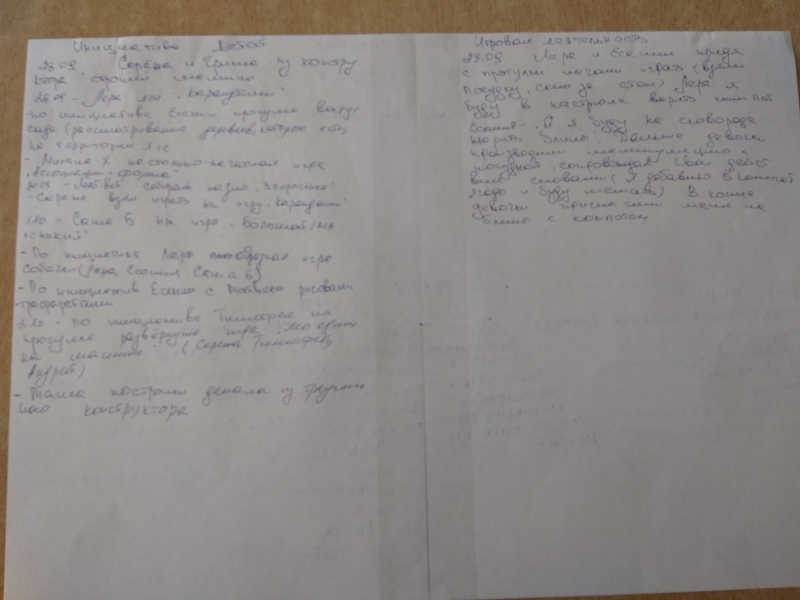 Инициатива детей
28.09 Сережа и Гриша из констру
ктора строили машины
28.09 - Лера н/и "Карандаши"
- по инициативе Есении прогулка вокруг
сада (рассматривание деревьев, которые есть
на территории д/с
- Михаил Х настольно-печатная игра
"Ассоциации - формы"
30.09 - Матвей собирал пазлы
- Сережа взял играть н/и игру "Карандаши"
1.10 - Саша Б н/и игра "Большой, ма
ленький"
- По инициативе Леры игра
собачки (Лера, Есения, Саша Б)
- По инициативе Есении с Матвеем рисовали
трафаретами
2.10 - по инициативе Тимофея на
прогулке развёрнута игра "Мы едем
на машине" (Сережа, Тимофей,
Андрей)
- Маша построила из
конструктора
Игровая деятельность
28.09 Лера и Есения придя
с прогулки начали играть (взяли
посуду, сели за стол) Лера: я
буду в кастрюле варить
Есения - А я буду на сковороде
жарить блины. Дальше девочки
производили манипуляцию с
посудой, сопровождая свои дейст
вия словами (я добавлю в компот
ягоды и буду мешать) В конце
девочки пригласили меня на
блины с компотом